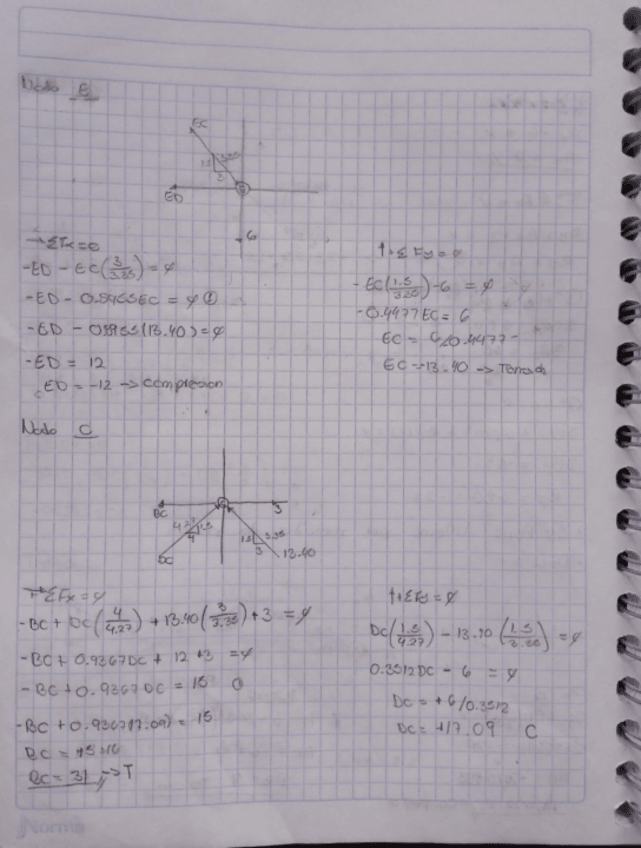 Nodo E
EC
1.5 3.35
3
ED
E
6
→ΣFx=0
-ED - EC(3/3.35) = 0
-ED - 0.8955EC = 0 ①
-ED - 0.8955(13.40) = 0
-ED = 12
ED = -12 → compresion
↑+ΣFy = 0
-EC(1.5/3.35) - 6 = 0
-0.4477EC = 6
EC = 6/0.4477
EC = 13.40 → Tension
Nodo C
BC
C
3
4.27 1.5
4
DC
1.5 3.35
3
13.40
→+ΣFx = 0
-BC + DC(4/4.27) + 13.40(3/3.35) + 3 = 0
-BC + 0.9367DC + 12 + 3 = 0
-BC + 0.9367DC = 15 ①
-BC + 0.9367(17.09) = 15
BC = 15+16
BC = 31 → T
↑+ΣFy = 0
DC(1.5/4.27) - 13.40(1.5/3.35) = 0
0.3512DC - 6 = 0
DC = +6/0.3512
DC = +17.09 C
Norma